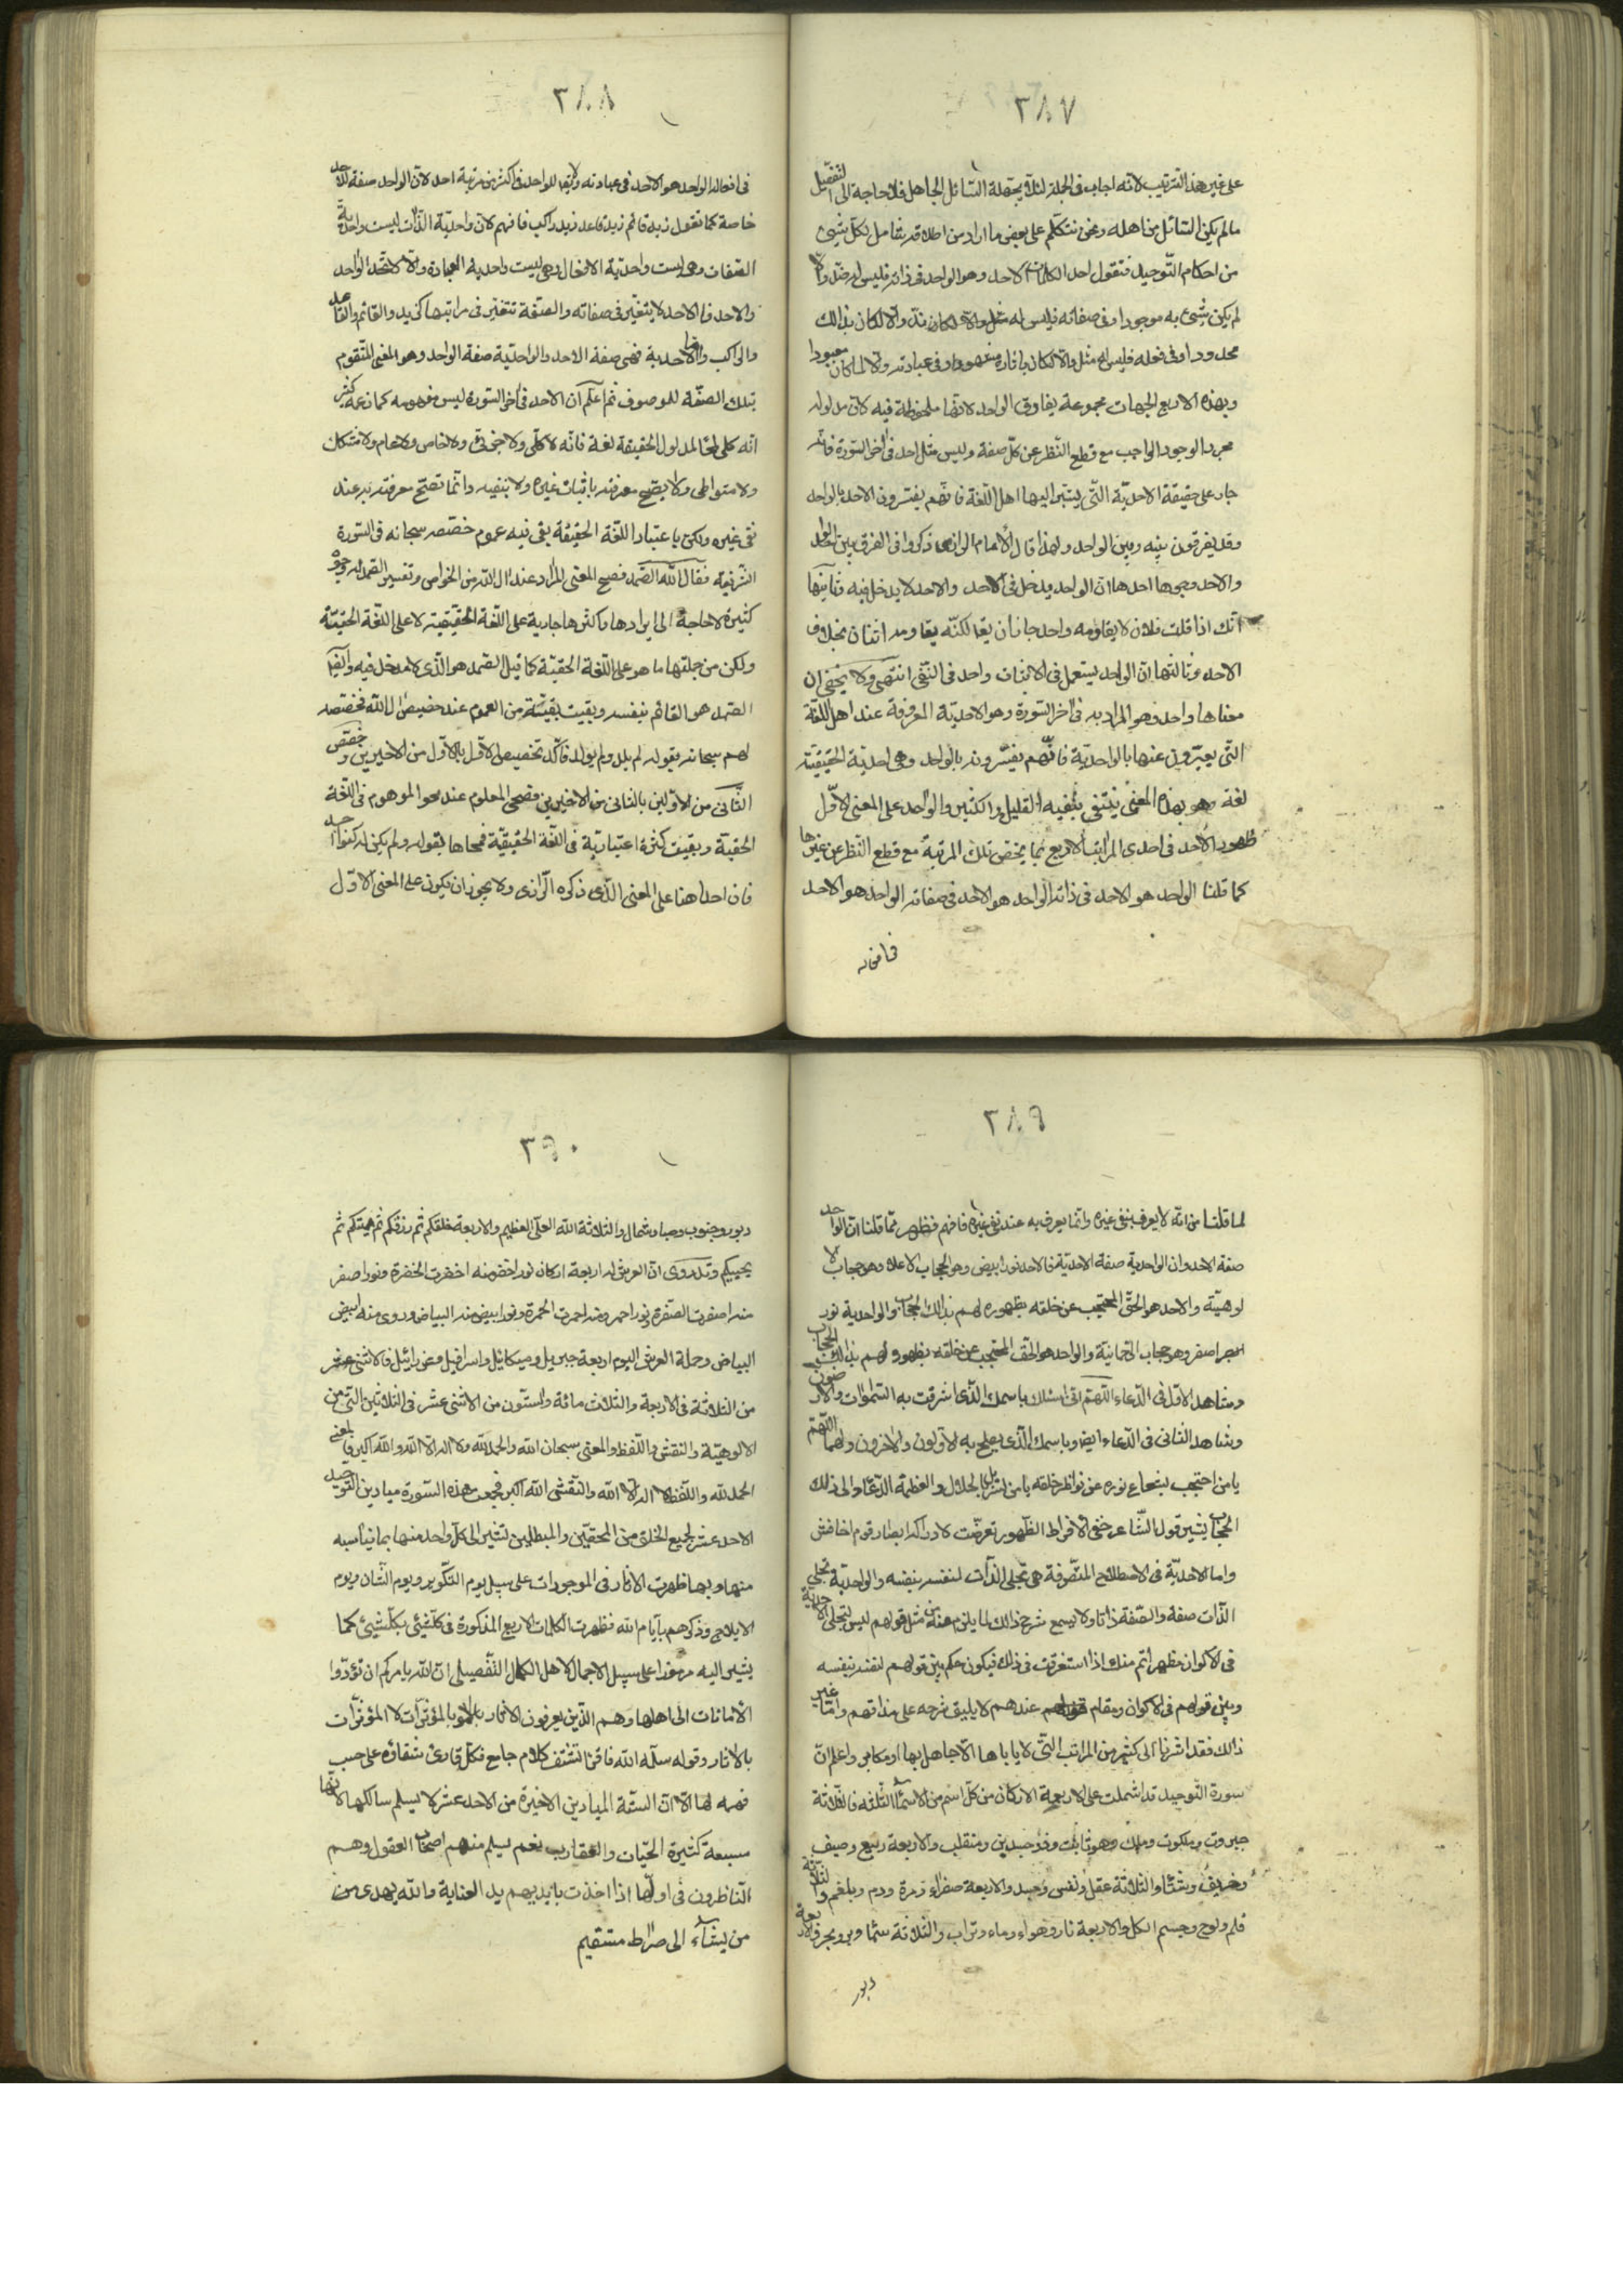 ٣٨٧
على غير هذا الترتيب لانه اجاب فى الجملة لئلا يجهله السائل الجاهل فلا حاجة الى التفصيل
ما لم يكن السائل من اهله ونحن نتكلم على بعض ما اراد من اطلاقه تعامل لكل شيئ
من احكام التوحيد فنقول احد الكلمات الاحد وهو الواحد فى ذاته فليس له ضد ولا
لم يكن شيئ به موجودا وفى صفاته فليس له مثل والا لكان ندّ والا لكان بذالك
محدودا وفى فعله فليس له مثل والا لكان باثاره وفى عبادته ولا لما كان معبودا
وبهذه الاربع الجهات مجموعة يفارق الواحد لانها ملحوظة فيه لان مدلوله
مجرد الوجود الواجب مع قطع النظر عن كل صفة وليس مثل احد فى اخر السورة فانه
جار على حقيقة الاحدية التى يشير اليها اهل اللغة فانهم يفسرون الاحد بالواحد
وقد يفرقون بينه وبين الواحد ولهذا قال الامام الرازى ذكروا فى الفرق بين الواحد
والاحد وجوها احدها ان الواحد يدخل فى الاحد والاحد لا يدخل فيه وثانيها
انك اذا قلت فلان لا يقاومه واحد جاز ان يقا لكنّه يقاومه اثنان بخلاف
الاحد وثالثها ان الواحد يستعمل فى الاثبات واحد فى النفى انتهى ولا يخفى ان
معناها واحد وهو المراد به فى اخر السورة وهو الاحدية المعروفة عند اهل اللغة
التى يعبّرون عنها بالواحدية فانهم يفسّرونه بالواحد وهى احدية الحقيقية
لغة وهو بهذا المعنى ينتفى بنفيه القليل والكثير والواحد على المعنى الاوّل
ظهور الاحد فى احدى المراتب الاربع بما يختص بتلك المرتبة مع قطع النظر عن غيرها
كما قلنا الواحد هو الاحد فى ذاته الواحد هو الاحد فى صفاته الواحد هو الاحد
فى افعاله
٣٨٨
فى افعاله الواحد هو الاحد فى عبادته ولا يقا للواحد فى اكثر من مرتبة احد لان الواحد صفة للاحد
خاصة كما تقول زيد قائم زيد قاعد زيد راكب فافهم لان واحدية الذات ليست واحدية
الصفات وهى ليست واحدية الافعال وهى ليست واحدية العبادة والا لاتحد الواحد
والاحد فالاحد لا يتغيّر فى صفاته والصفة تتغيّر فى مراتبها كزيد والقائم والقاعد
والراكب واما الاحدية فهى صفة الاحد والواحديّة صفة الواحد وهو المعنى المتقوم
بتلك الصفة للموصوف ثم اعلم ان الاحد فى اخر السورة ليس مفهومه كما زعمه كثير
انه كلى لغا لمدلول الحقيقة لغة فانه لا كلّى ولا جزئى ولا خاص ولا عام ولا مشكك
ولا متواطى ولا يصح معرفته باثبات غيره ولا بنفيه وانما تصح معرفته به عند
نفى غيره ولكن باعتبار اللغة الحقيقة بقى فيه عموم خصّصه سبحانه فى السورة
الشريفة فقال الله الصمد فصح المعنى المراد عند ال الله من الخواص وتفسير الصمد له وجوه
كثيرة لا حاجة الى ايرادها واكثرها جارية على اللغة الحقيقية لا على اللغة الحقيّة
ولكن من جملتها ما هو على اللغة الحقيّة كما قيل الصمد هو الذى لا مدخل فيه وايضا
الصمد هو القائم بنفسه وبقيت بقيّة من العموم عند خصيص ال الله فخصّصه
لهم سبحانه بقوله لم يلد ولم يولد فاكّد تخصيص الاوّل بالاوّل من الاخيرين وخصّص
الثّانى من الاوّلين بالثانى من الاخيرين فصحى المعلوم عند محو الموهوم فى اللغة
الحقيّة وبقيت كثرة اعتبارية فى اللّغة الحقيقيّة فمحاها بقوله ولم يكن له كفوا احد
فان احدا هنا على المعنى الذى ذكره الرازى ولا يجوز ان يكون على المعنى الاوّل
٣٨٩
لما قلنا من انه لا يعرف بنفى غيره وانما يعرف به عند نفى غيره فافهم فظهر ممّا قلنا ان الواحد
صفة الاحد وان الواحدية صفة الاحدية فالاحد نور ابيض وهو الحجاب الاعلا وهو حجاب الا
لوهيّة والاحد هو الحق المحتجب عن خلقه بظهوره لهم بذالك الحجاب والواحدية نور
اصفر وهو حجاب الرحمانية والواحد هو الحق المحتجب عن خلقه بظهوره لهم بذالك الحجاب
وشاهد الاوّل فى الدعاء اللهم انى اسئلك باسمك الذى اشرقت به السّموات والارضون
وشاهد الثانى فى الدعاء ايضا وباسمك الذى يصلح به الاولون والاخرون ولهما اللهم
يا من احتجب بشعاع نوره عن نواظر خلقه يا من تسربل بالجلال والعظمة الدعاء والى ذلك
الحجاب يشير قول الشاعر خفى لافراط الظهور تعرّضت لادراكه ابصار قوم اخافش
واما الاحديّة فى اصطلاح المتصوفة هى تجلى الذات لنفسه بنفسه والواحدية تجلى
الذات صفة والصفة ذاتا ولا يسع شرح ذالك لما يلزم منه مثل قولهم ليس لتجلى الاحدية
فى الاكوان مظهر اتم منك اذا استغرقت فى ذلك فيكون حكم بين قولهم لنفسه بنفسه
وبين قولهم فى الاكوان ومقام عندهم لا يليق شرحه على مذاقهم وامّا غير
ذالك فقد اشرنا الى كثير من المراتب التى لا ياباها الا جاهل بها او مكابر واعلم ان
سورة التوحيد قد اشملت على الاربعة الاركان من كل اسم من الاسماء الثلثه فالثلاثة
جبروت وملكوت وملك وهو ثابت وذو جسدين ومنقلب والاربعة ربيع وصيف
وخريف وشتاء والثلاثة عقل ونفس وجسد والاربعة صفراء ومرة ودم وبلغم والثلاثة
قلم ولوح وجسم الكل والاربعة نار وهواء وماء وتراب والثلاثة سما وبر وبحر والاربعة
دبور
٣٩٠
دبور وجنوب وصبا وشمال والثلاثة الله العلى العظيم والاربعة خلقكم ثم رزقكم ثم يميتكم ثم
يحييكم وقد روى ان العرش له اربعة اركان نور اخضر منه اخضرت الخضرة ونور اصفر
منه اصفرت الصفرة ونور احمر ومنه احمرت الحمرة ونور ابيض منه البياض وروى منه ابيض
البياض وحملة العرش اليوم اربعة جبريل وميكائيل واسرافيل وعزرائيل فالاثنى عشر
من الثلاثة فى الاربعة والثلاث مائة والستون من الاثنى عشر فى الثلاثين التى من
الالوهيّة والنقش واللفظ والمعنى سبحان الله والحمد لله ولا اله الا الله والله اكبر فالمعنى
الحمد لله واللفظ لا اله الا الله والنقش الله اكبر فجمعت هذه السورة ميادين التوحيد
الاحد عشر لجميع الخلق من المحقين والمبطلين لتشير الى كل واحد منها بما يناسبه
منها وبها ظهرت الاثار فى الموجودات على سبيل يوم التكوير ويوم الشان ويوم
الايلاج وذكرهم بأيام الله فظهرت الكلمات الاربع المذكورة فى كل شيئ بكل شيئ كما
يشير اليه مرموزا على سبيل الاجمال لاهل الكمال التفصيلى ان الله يامركم ان تؤدّوا
الأمانات الى اهلها وهم الذين يعرفون الاثار بالمؤثرات لا المؤثرات
بالاثار وقوله سلّمه الله فانها تشتف كلام جامع فكل قارئ شفاؤه على حسب
فهمه لها الا ان الستّة الميادين الاخيرة من الاحد عشر لا يسلم سالكها لانها
مسبعة كثيرة الحيّات والعقارب نعم يسلم منهم اصحاب العقول وهم
الناظرون فى اولها اذا اخذت بايديهم يد العناية والله يهدى من
من يشاء الى صراط مستقيم